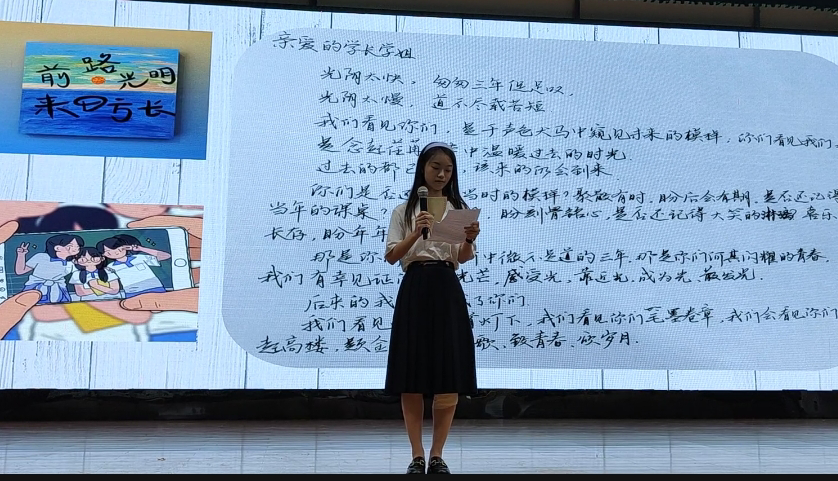 前路光明
来日方长
亲爱的学长学姐
光阴太快，匆匆三年但足以，
光阴太慢，道不尽载苦短
我们看见你们，是于声色犬马中窥见付来的模样，你们看见我们，
是念起荏苒中温暖过去的时光
过去的都，该来的仍会到来
你们是否当时的模样？聚散有时，盼后会有期，是否还记得
当年的课桌？盼刻骨铭心，是否还记得大笑的喜乐
长存，盼年年
那是你中微不足道的三年，那是你们何其闪耀的青春，
我们有幸见证光芒，感受光，靠近光，成为光，散发光．
后来的我了你们
我们看见灯下，我们看见你们笔墨卷章，我们会看见你们
起高楼，题金歌、致青春、颂岁月．